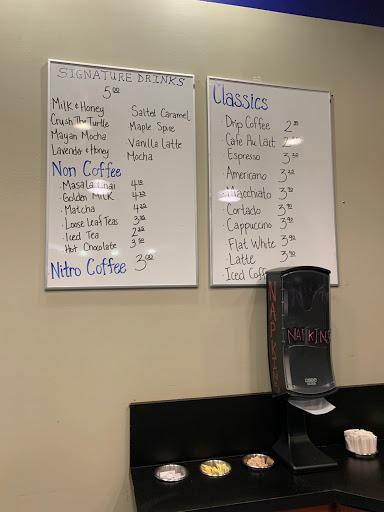 SIGNATURE DRINKS
5.00
Milk & Honey
Crush The Turtle
Mayan Mocha
Lavender & Honey
Salted Caramel
Maple Spice
Vanilla Latte
Mocha
Non Coffee
· Masala Chai 4
· Golden Milk 4
· Matcha 4
· Loose Leaf Teas 3
· Iced Tea 2
Hot Chocolate 3
Nitro Coffee 3.00
Classics
· Drip Coffee 2
· Cafe Au Lait 2
· Espresso 3
· Americano 3
· Macchiato 3
· Cortado 3
· Cappuccino 3
· Flat White 3
· Latte 3
· Iced Coff
NAPKINS
NAPKINS